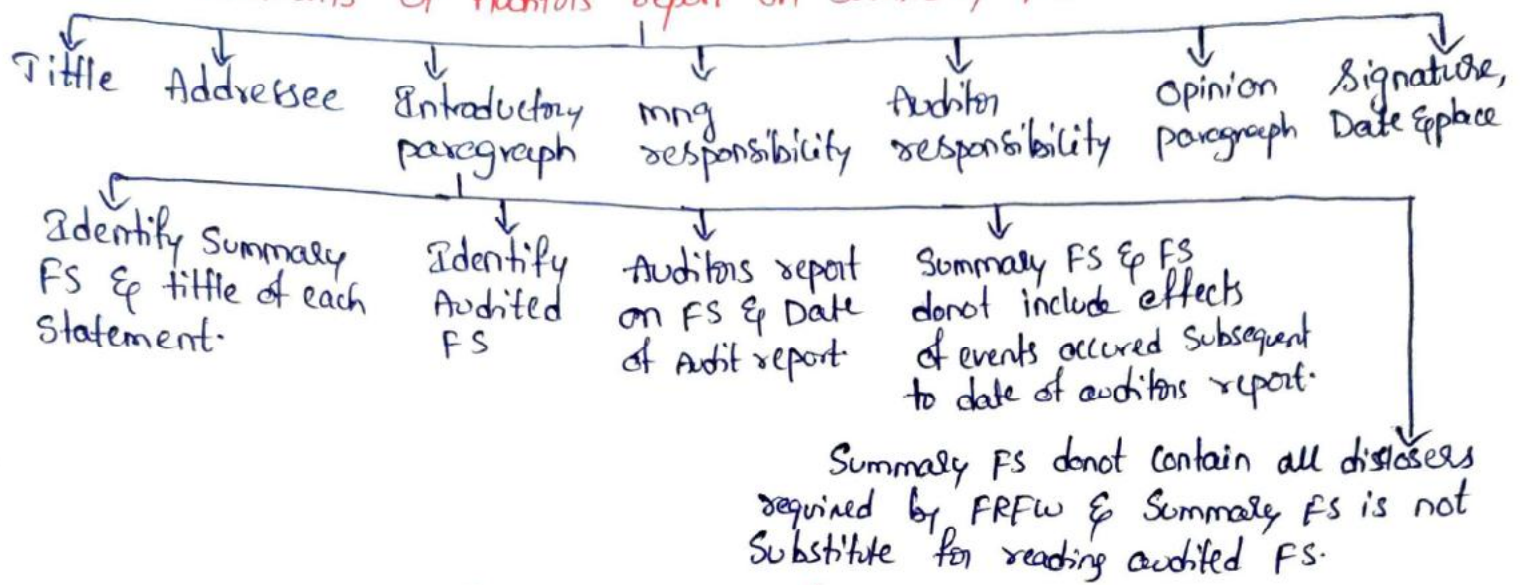 of Auditors report on
Tittle
Addressee
Introductory
paragraph
mng
responsibility
Auditor
responsibility
Opinion
paragraph
Signature,
Date & place
Identify Summary
FS & tittle of each
Statement.
Identify
Audited
FS
Auditors report
on FS & Date
of Audit report.
Summary FS & FS
donot include effects
of events occured Subsequent
to date of auditors report.
Summary FS donot Contain all
required by FRFW & Summary FS is not
Substitute for reading audited FS.